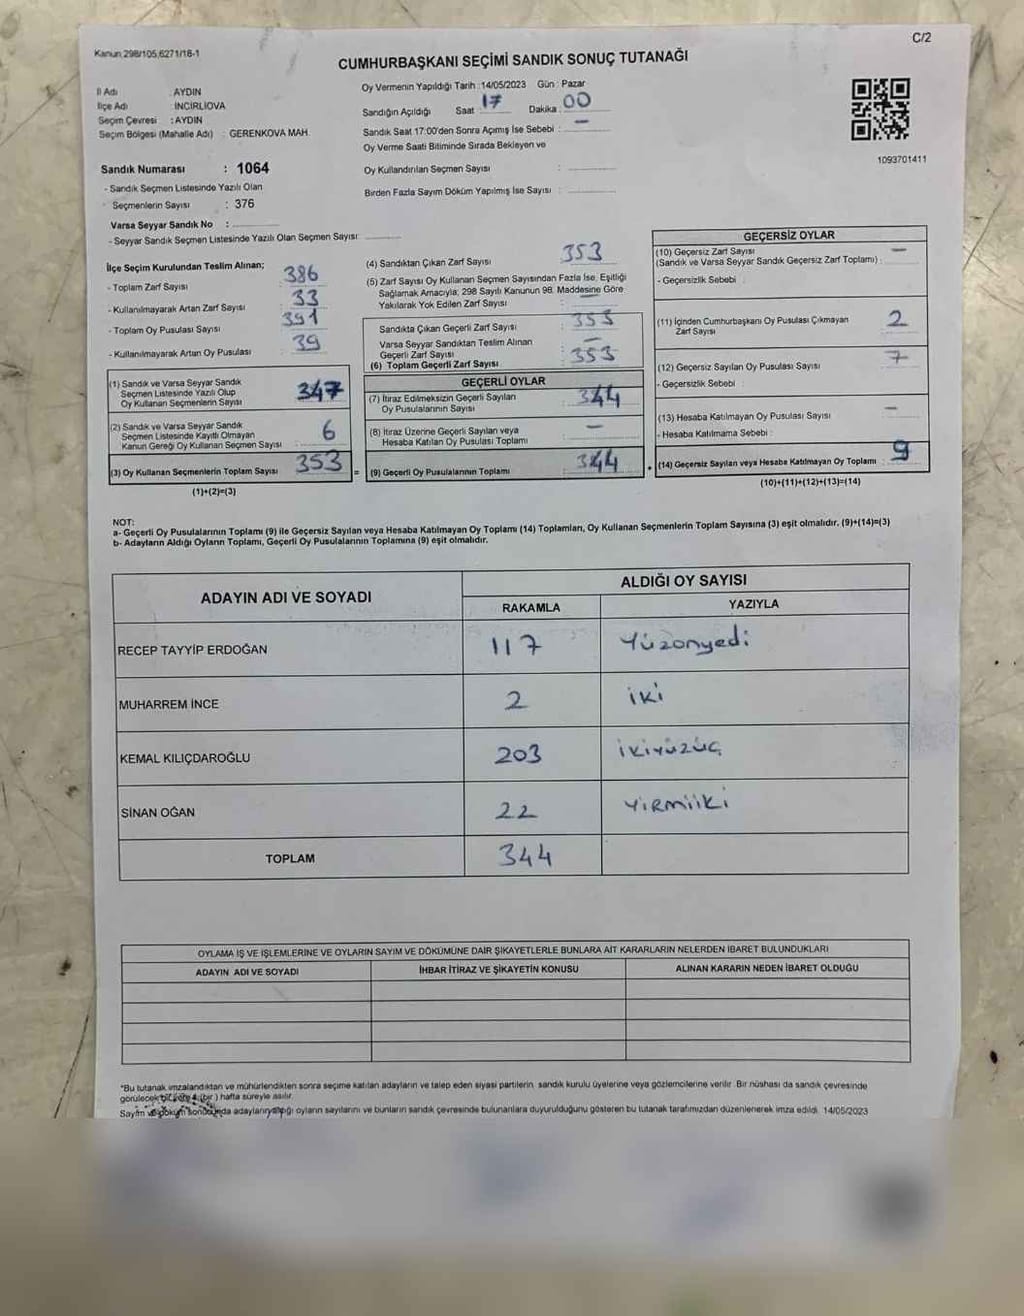 C/2
Kanun 298/105,6271/18-1
CUMHURBAŞKANI SEÇİMİ SANDIK SONUÇ TUTANAĞI
İl Adı : AYDIN
İlçe Adı : İNCİRLİOVA
Seçim Çevresi : AYDIN
Seçim Bölgesi (Mahalle Adı) : GERENKOVA MAH.
Sandık Numarası : 1064
- Sandık Seçmen Listesinde Yazılı Olan
Seçmenlerin Sayısı : 376
Varsa Seyyar Sandık No :
- Seyyar Sandık Seçmen Listesinde Yazılı Olan Seçmen Sayısı:
Oy Vermenin Yapıldığı Tarih : 14/05/2023 Gün : Pazar
Sandığın Açıldığı Saat : 17 Dakika : 00
Sandık Saat 17:00'den Sonra Açımış İse Sebebi : -
Oy Verme Saati Bitiminde Sırada Bekleyen ve
Oy Kullandırılan Seçmen Sayısı :
Birden Fazla Sayım Döküm Yapılmış İse Sayısı :
1093701411
İlçe Seçim Kurulundan Teslim Alınan;
- Toplam Zarf Sayısı : 386
- Kullanılmayarak Artan Zarf Sayısı : 33
- Toplam Oy Pusulası Sayısı : 391
- Kullanılmayarak Artan Oy Pusulası : 39
(1) Sandık ve Varsa Seyyar Sandık
Seçmen Listesinde Yazılı Olup
Oy Kullanan Seçmenlerin Sayısı : 347
(2) Sandık ve Varsa Seyyar Sandık
Seçmen Listesinde Kayıtlı Olmayan
Kanun Gereği Oy Kullanan Seçmen Sayısı : 6
(3) Oy Kullanan Seçmenlerin Toplam Sayısı : 353
(1)+(2)=(3)
(4) Sandıktan Çıkan Zarf Sayısı : 353
(5) Zarf Sayısı Oy Kullanan Seçmen Sayısından Fazla İse, Eşitliği
Sağlamak Amacıyla; 298 Sayılı Kanunun 98. Maddesine Göre
Yakılarak Yok Edilen Zarf Sayısı : -
Sandıkta Çıkan Geçerli Zarf Sayısı : 353
Varsa Seyyar Sandıktan Teslim Alınan
Geçerli Zarf Sayısı : -
(6) Toplam Geçerli Zarf Sayısı : 353
GEÇERLİ OYLAR
(7) İtiraz Edilmeksizin Geçerli Sayılan
Oy Pusulalarının Sayısı : 344
(8) İtiraz Üzerine Geçerli Sayılan veya
Hesaba Katılan Oy Pusulası Toplamı : -
= (9) Geçerli Oy Pusulalarının Toplamı : 344
GEÇERSİZ OYLAR
(10) Geçersiz Zarf Sayısı
(Sandık ve Varsa Seyyar Sandık Geçersiz Zarf Toplamı) : -
- Geçersizlik Sebebi :
(11) İçinden Cumhurbaşkanı Oy Pusulası Çıkmayan
Zarf Sayısı : 2
(12) Geçersiz Sayılan Oy Pusulası Sayısı : 7
- Geçersizlik Sebebi :
(13) Hesaba Katılmayan Oy Pusulası Sayısı : -
- Hesaba Katılmama Sebebi :
+ (14) Geçersiz Sayılan veya Hesaba Katılmayan Oy Toplamı : 9
(10)+(11)+(12)+(13)=(14)
NOT:
a- Geçerli Oy Pusulalarının Toplamı (9) ile Geçersiz Sayılan veya Hesaba Katılmayan Oy Toplamı (14) Toplamları, Oy Kullanan Seçmenlerin Toplam Sayısına (3) eşit olmalıdır. (9)+(14)=(3)
b- Adayların Aldığı Oyların Toplamı, Geçerli Oy Pusulalarının Toplamına (9) eşit olmalıdır.
ADAYIN ADI VE SOYADI ALDIĞI OY SAYISI
RAKAMLA YAZIYLA
RECEP TAYYİP ERDOĞAN 117 Yüzonyedi
MUHARREM İNCE 2 iki
KEMAL KILIÇDAROĞLU 203 ikiyüzüç
SİNAN OĞAN 22 Yirmiiki
TOPLAM 344
OYLAMA İŞ VE İŞLEMLERİNE VE OYLARIN SAYIM VE DÖKÜMÜNE DAİR ŞİKAYETLERLE BUNLARA AİT KARARLARIN NELERDEN İBARET BULUNDUKLARI
ADAYIN ADI VE SOYADI İHBAR İTİRAZ VE ŞİKAYETİN KONUSU ALINAN KARARIN NEDEN İBARET OLDUĞU
*Bu tutanak imzalandıktan ve mühürlendikten sonra seçime katılan adayların ve talep eden siyasi partilerin, sandık kurulu üyelerine veya gözlemcilerine verilir. Bir nüshası da sandık çevresinde
görülecek bir yere 1 (bir) hafta süreyle asılır.
Sayım ve döküm sonucunda adayların aldığı oyların sayılarını ve bunların sandık çevresinde bulunanlara duyurulduğunu gösteren bu tutanak tarafımızdan düzenlenerek imza edildi. 14/05/2023